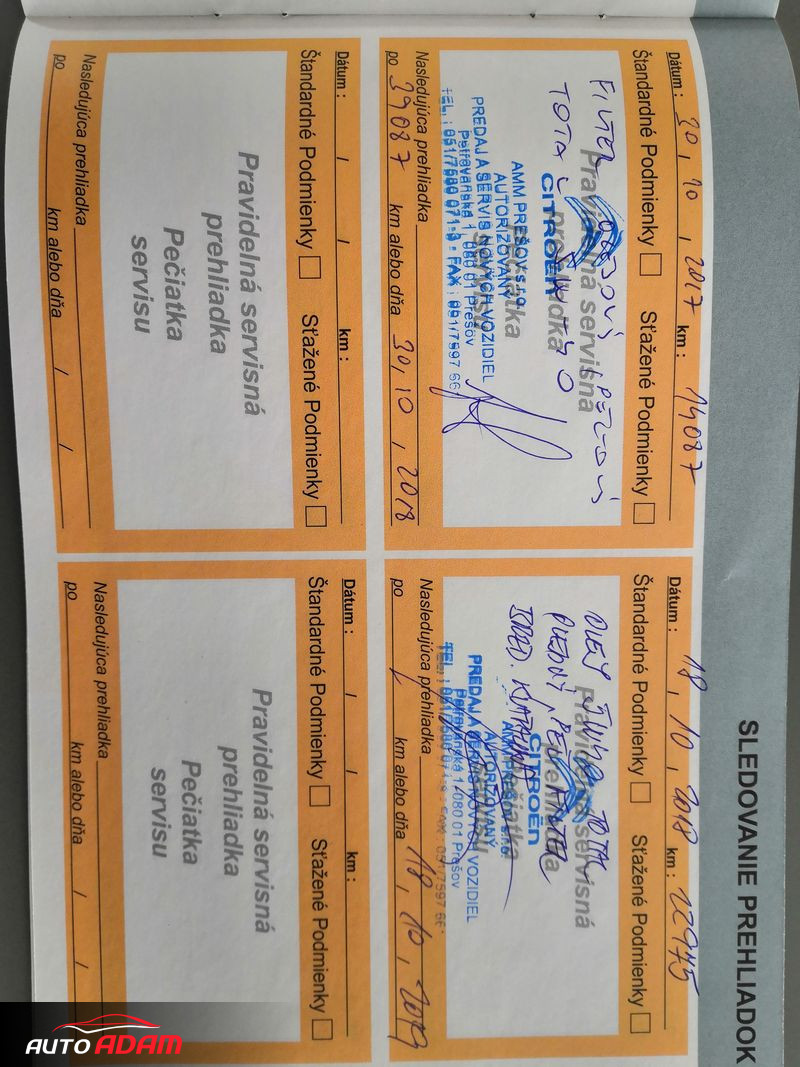 SLEDOVANIE PREHLIADOK
Dátum : 30, 10, 2017 km : 14087
Štandardné Podmienky Sťažené Podmienky
FILTER OLEJOVÝ, PEĽOVÝ
TOTAL
Pravidelná servisná
prehliadka
Pečiatka
servisu
CITROËN
AMM PREŠOV s.r.o.
AUTORIZOVANÝ
PREDAJ A SERVIS NOVÝCH VOZIDIEL
Petrovanská 1, 080 01 Prešov
TEL. : 051/7580 071-3 - FAX : 051/7597 66
Nasledujúca prehliadka
po 39087 km alebo dňa 30, 10, 2018
Dátum : 18, 10, 2018 km : 22975
Štandardné Podmienky Sťažené Podmienky
OLEJ TOTAL
FILTER
Pravidelná servisná
prehliadka
Pečiatka
servisu
CITROËN
AMM PREŠOV s.r.o.
AUTORIZOVANÝ
PREDAJ A SERVIS NOVÝCH VOZIDIEL
Petrovanská 1, 080 01 Prešov
TEL. : 051/7580 071-3 - FAX : 051/7597 66
Nasledujúca prehliadka
po km alebo dňa 18, 10, 2019
Dátum : / / km :
Štandardné Podmienky Sťažené Podmienky
Pravidelná servisná
prehliadka
Pečiatka
servisu
Nasledujúca prehliadka
po km alebo dňa / /
Dátum : / / km :
Štandardné Podmienky Sťažené Podmienky
Pravidelná servisná
prehliadka
Pečiatka
servisu
Nasledujúca prehliadka
po km alebo dňa / /
AUTO ADAM